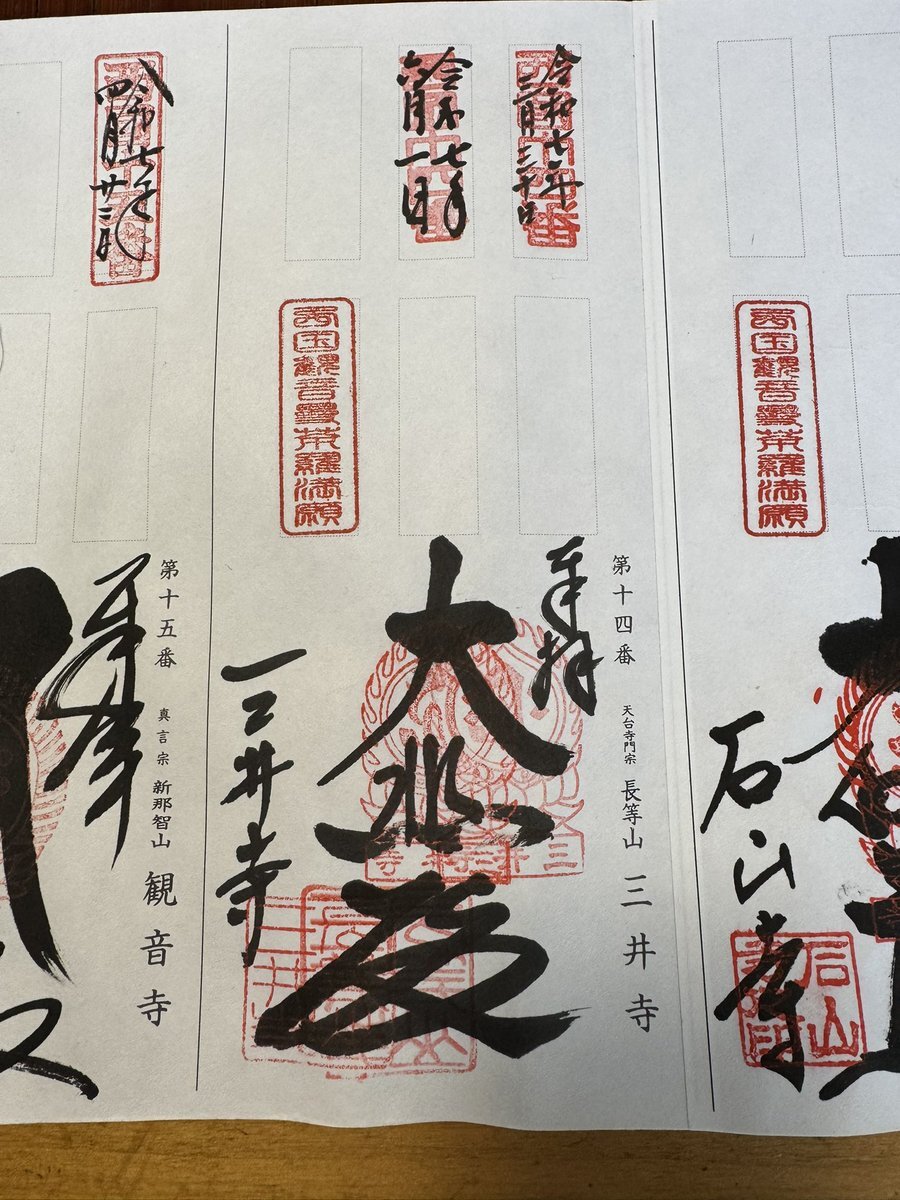 西国観音曼荼羅満願
石山寺
石山
令和七年
三月三十日
令和七年
六月一日
西国観音曼荼羅満願
第十四番 天台寺門宗 長等山 三井寺
奉拝
大悲殿
三井寺
令和七年
四月廿三日
第十五番 真言宗 新那智山 観音寺
奉拝